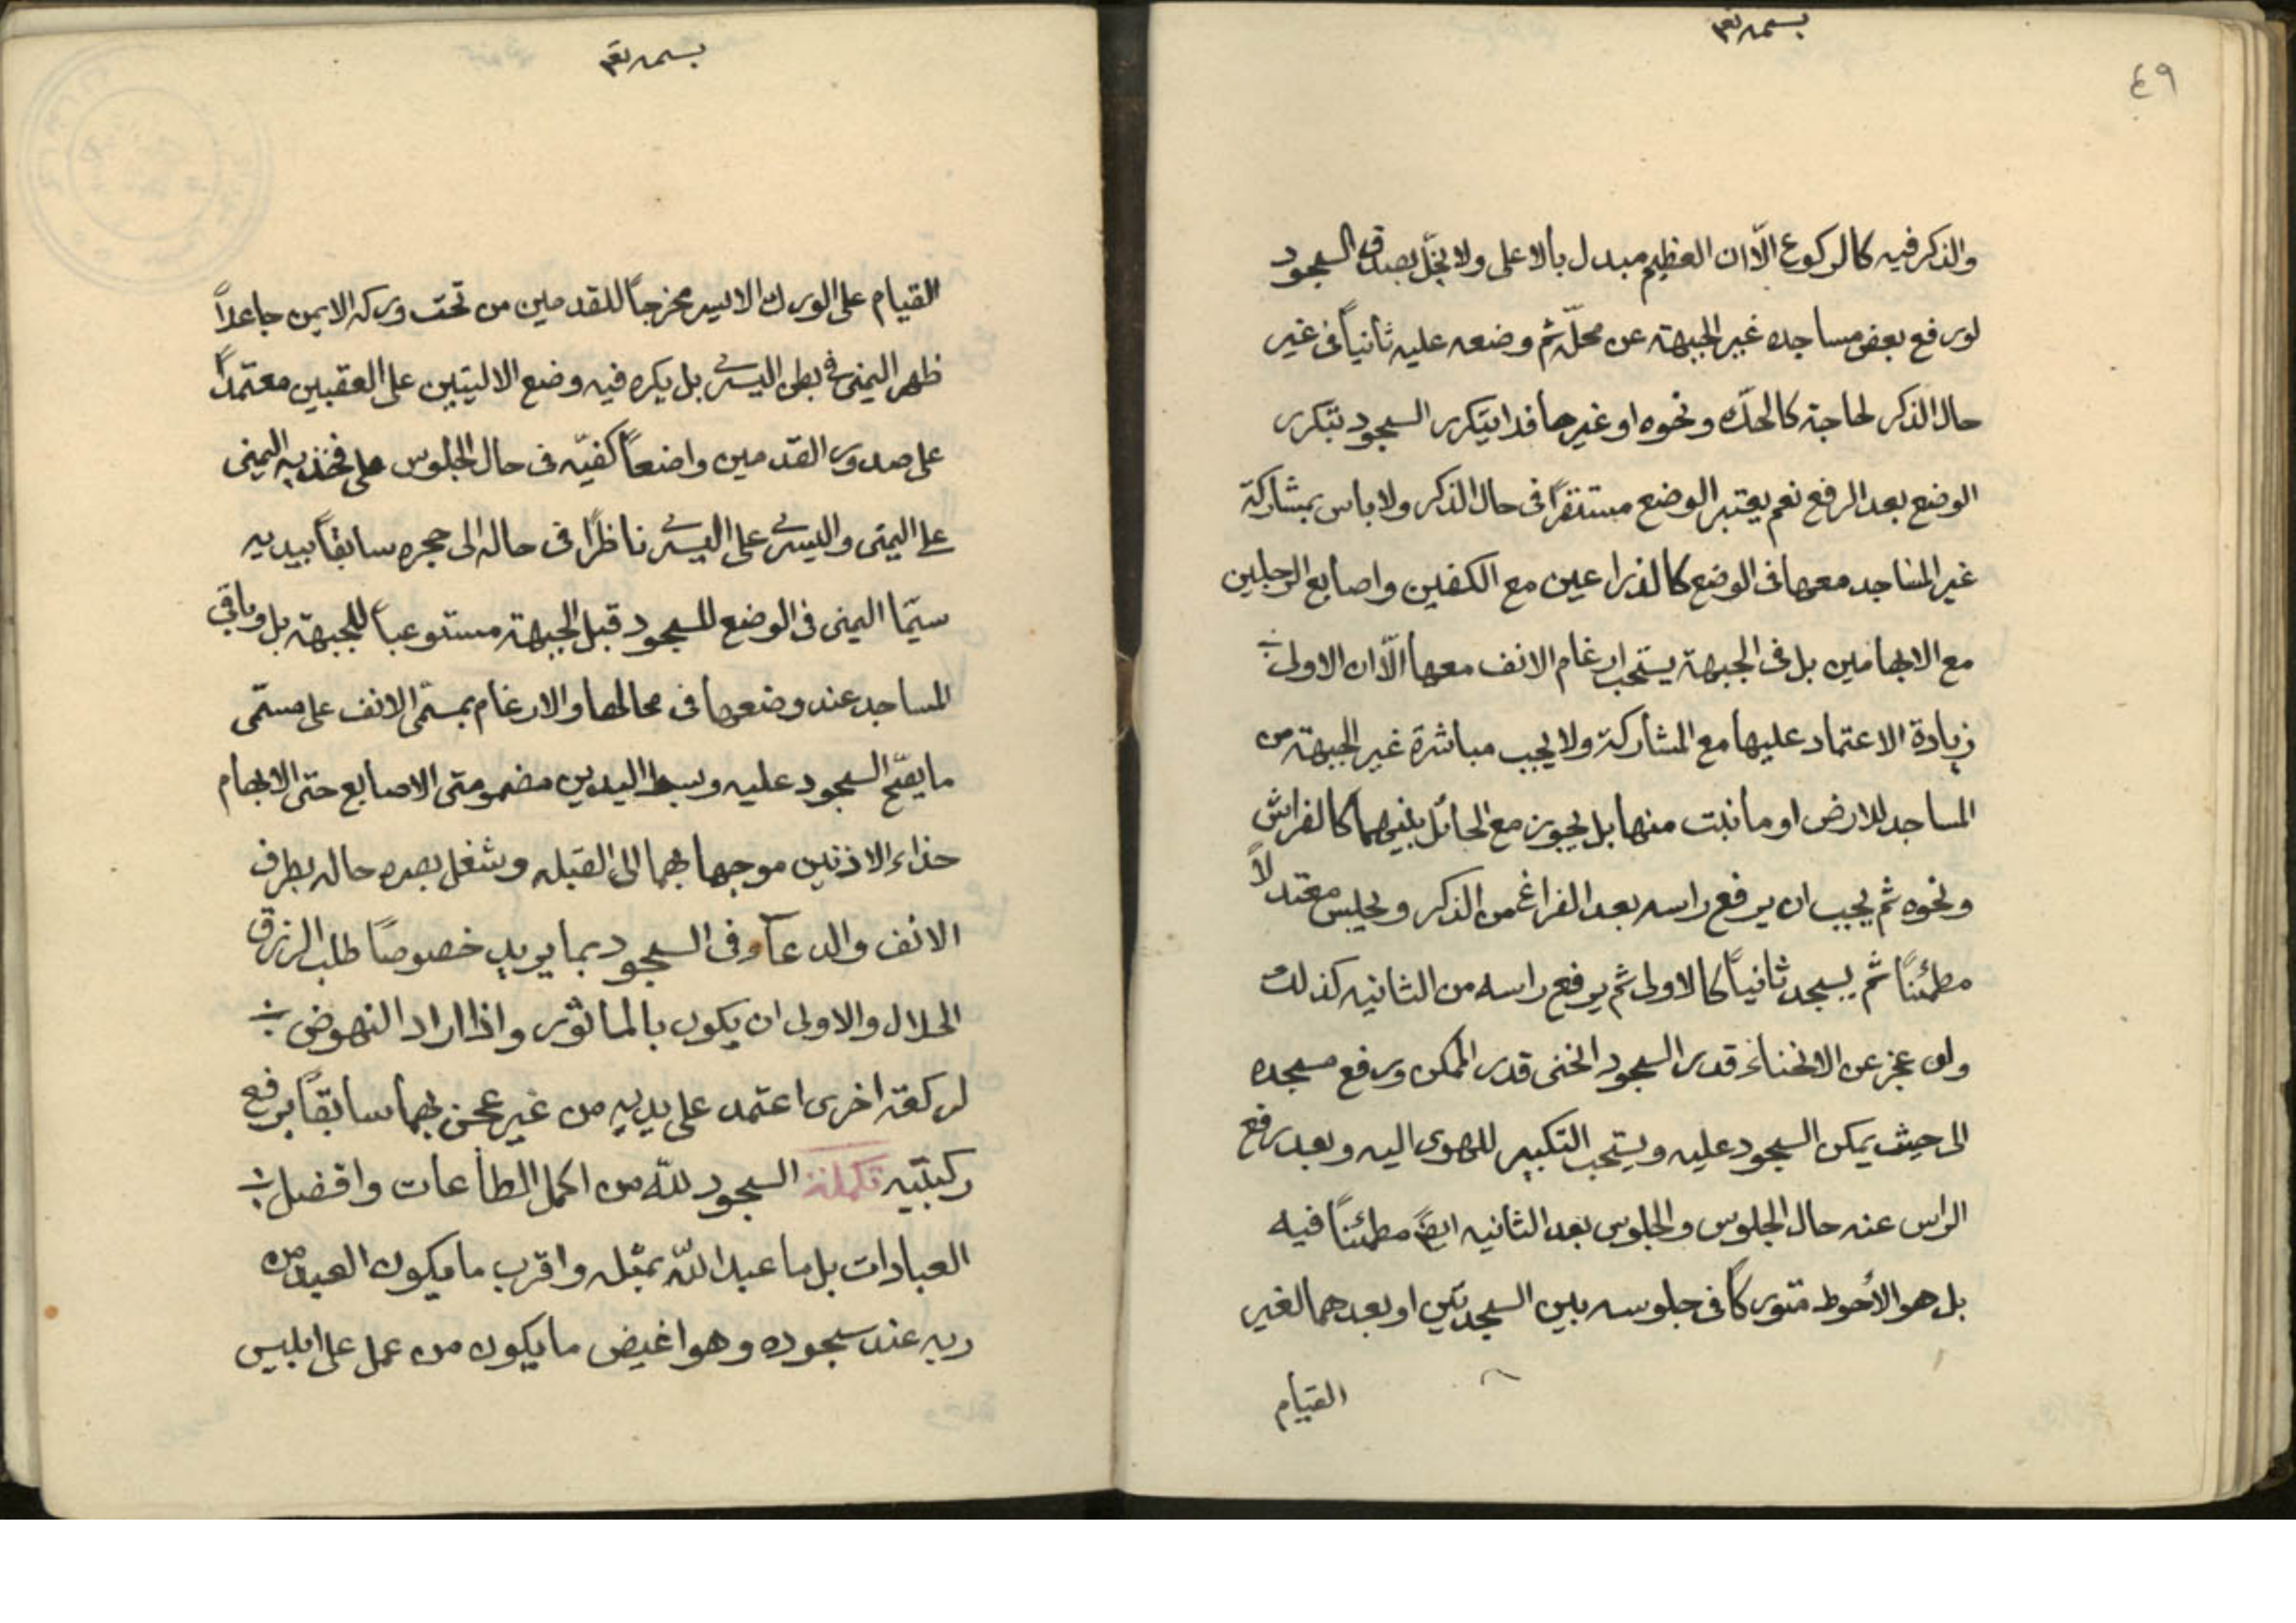 ٤٩
بسمه تعم
والذكر فيه كالركوع الّا ان العظيم مبدل بالاعلى ولا يخلّ بصدق السجود
لو رفع بعض مساجده غير الجبهة عن محلّه ثم وضعه عليه ثانياً فى غير
حال الذكر لحاجة كالحكّ ونحوه او غيرها فلا يتكرر السجود بتكرر
الوضع بعد الرفع نعم يعتبر الوضع مستقراً فى حال الذكر ولا باس بمشاركة
غير المساجد معها فى الوضع كالذراعين مع الكفين واصابع الرجلين
مع الابهامين بل فى الجبهة يستحب ارغام الانف معها الّا ان الاولى
زيادة الاعتماد عليها مع المشاركة ولا يجب مباشرة غير الجبهة من
المساجد للارض او ما نبت منها بل يجوز مع الحائل بينهما كالفراش
ونحوه ثم يجب ان يرفع راسه بعد الفراغ من الذكر ويجلس معتدلاً
مطمئناً ثم يسجد ثانياً كالاولى ثم يرفع راسه من الثانيه كذلك
ولو عجز عن الانحناء قدر السجود انحنى قدر الممكن ورفع مسجده
الى حيث يمكن السجود عليه ويستحب التكبير للهوى اليه وبعد رفع
الراس عنه حال الجلوس والجلوس بعد الثانيه ايضً مطمئناً فيه
بل هو الأحوط متوركاً فى جلوسه بين السجدتين او بعدهما لغير
القيام
بسمه تعم
القيام على الورك الايسر مخرجاً للقدمين من تحت وركه الايمن جاعلاً
ظهر اليمنى فى بطن اليسرى بل يكره فيه وضع الاليتين على العقبين معتمداً
على صدور القدمين واضعاً كفيّه فى حال الجلوس على فخذيه اليمنى
على اليمنى واليسرى على اليسرى ناظراً فى حاله الى حجره سابقاً بيديه
سيّما اليمنى فى الوضع للسجود قبل الجبهة مستوعباً للجبهة بل وباقى
المساجد عند وضعها فى محالها والارغام بمسمّى الانف على مسمّى
ما يصّح السجود عليه وبسط اليدين مضمومتى الاصابع حتى الابهام
حذاء الاذنين موجها بهما الى القبله وشغل بصره حاله بطرف
الانف والدعاء وفى السجود بما يريد خصوصاً طلب الرزق
الحلال والاولى ان يكون بالماثور واذا اراد النهوض
لركعة اخرى اعتمد على يديه من غير عجن بهما سابقاً برفع
ركبتيه تكملة السجود للّه من اكمل الطاعات وافضل
العبادات بل ما عبد اللّه بمثله واقرب ما يكون العبد من
ربه عند سجوده وهو اغيض ما يكون من عمل على ابليس